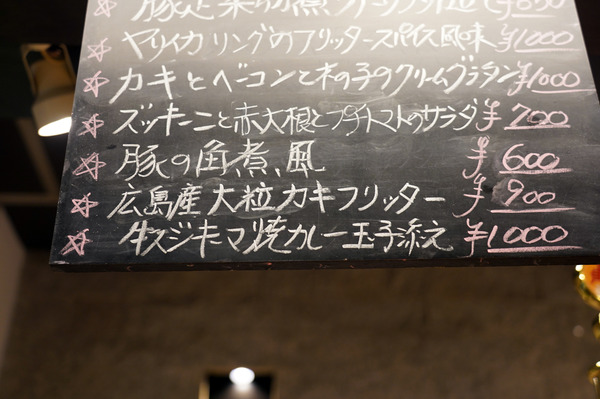 ☆ ヤリイカリングのフリッタースパイス風味 ¥1000
☆ カキとベーコンと木の子のクリームグラタン ¥1000
☆ ズッキーニと赤大根とプチトマトのサラダ ¥700
☆ 豚の角煮風 ¥600
☆ 広島産大粒カキフリッター ¥900
☆ 牛スジキーマ焼カレー玉子添え ¥1000